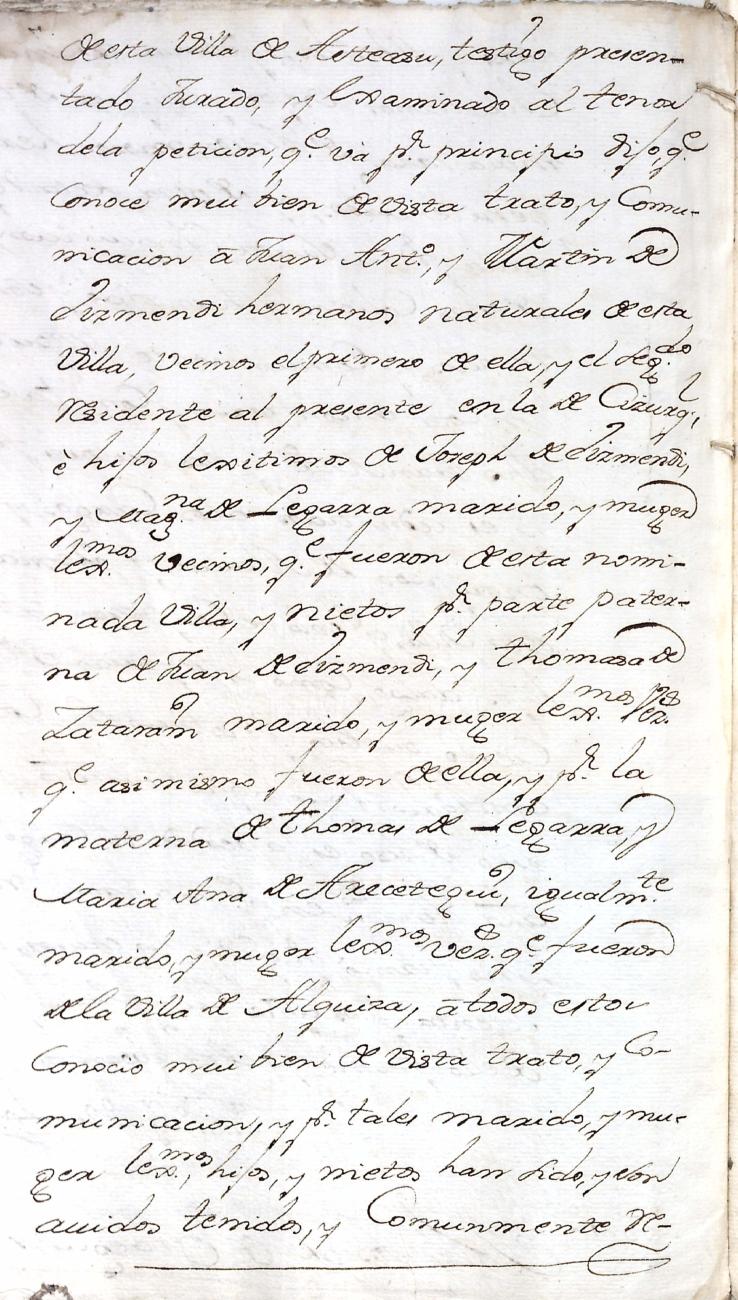 de esta Villa de Asteasu, testigo presen-
tado Jurado, y Examinado al tenor
dela peticion, q.e va p.r principio dijo, q.e
Conoce mui bien de vista trato, y Comu-
nicacion â Juan Ant.o, y Martin de
Lizmendi hermanos naturales de esta
Villa, Vecinos el primero de ella, y el seg.do
Residente al presente en la de Cizurq.l,
è hijos lexitimos de Joseph de Lizmendi,
y Mag.na de Legarra marido, y muger
lex.mos Vecinos, q.e fueron de esta nomi-
nada Villa, y nietos p.r parte pater-
na de Juan de Lizmendi, y Thomasa de
Zatarain marido, y muger lex.mos Vez.s
q.e asimismo fueron de ella, y p.r la
materna de Thomas de Legarra, y
Maria Ana de Arecetegui, igualm.te
marido, y muger lex.mos vez.s q.e fueron
dela Villa de Alquiza, â todos estos
Conocio mui bien de vista trato, y Co-
municacion, y p.r tales marido, y mu-
ger lex.mos, hijos, y nietos han sido, y son
auidos tenidos, y Comunmente re-